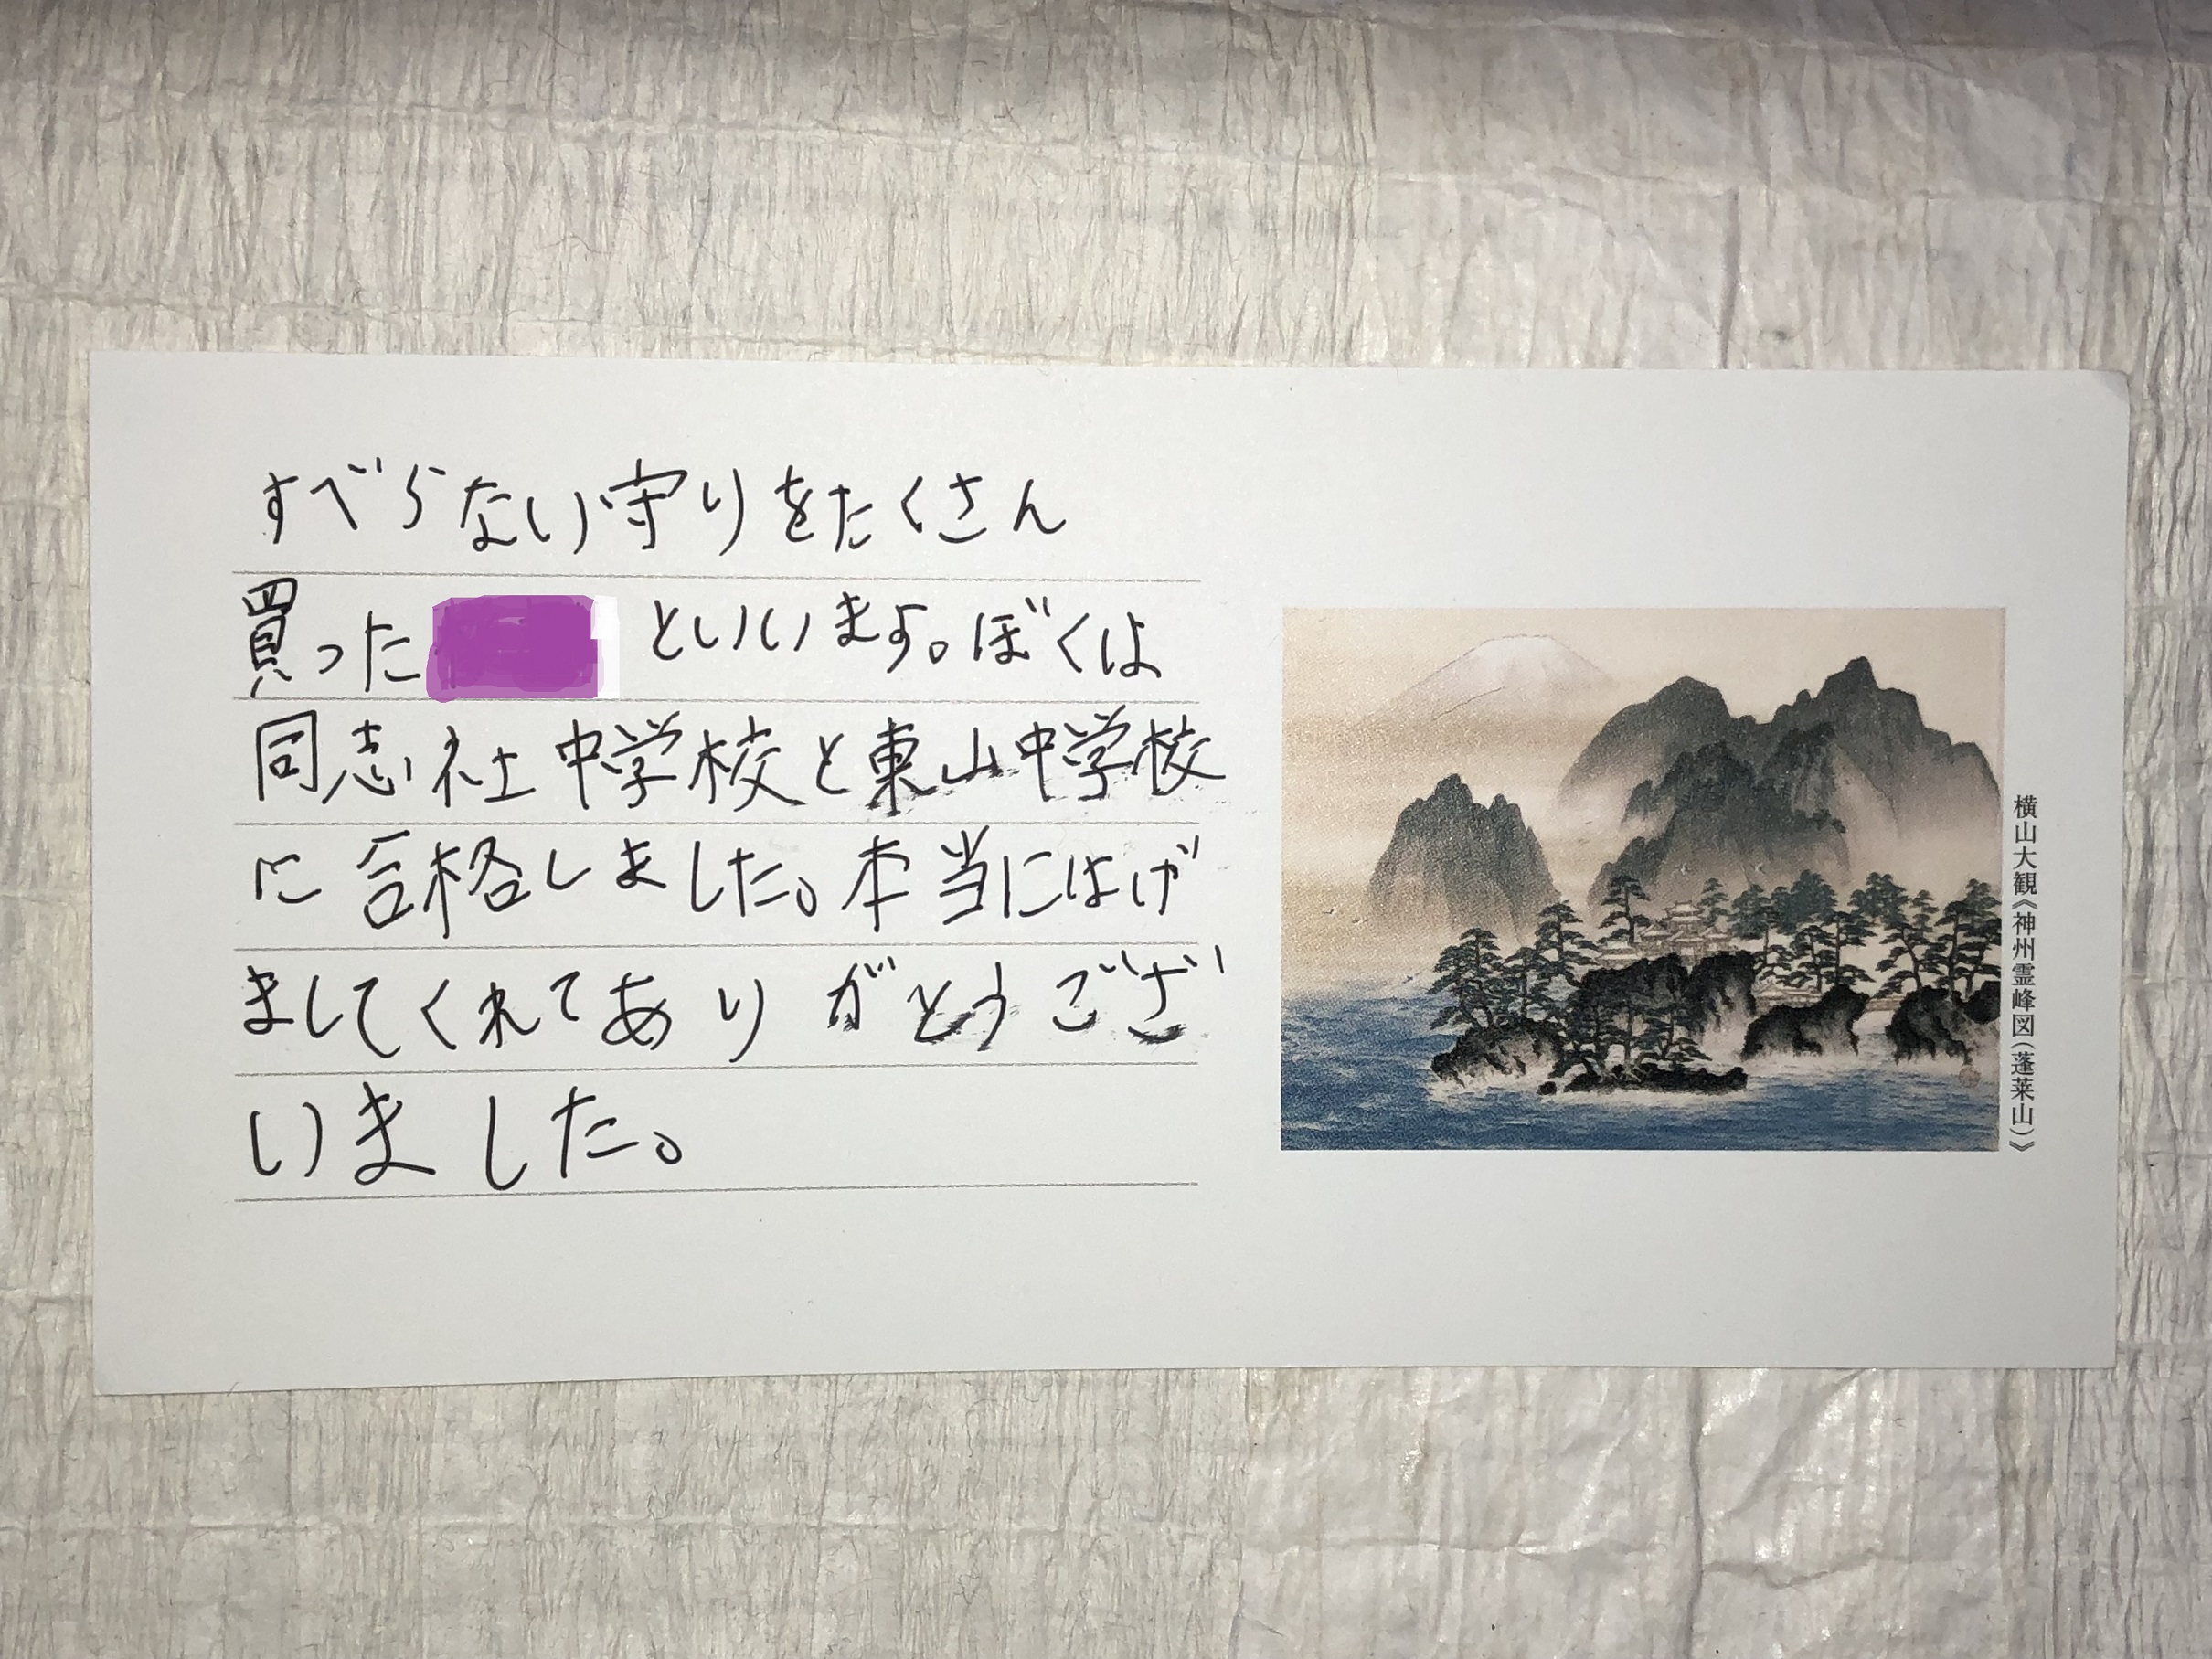 すべらない守りをたくさん
買った
といいます。ぼくは
同志社中学校と東山中学校
に合格しました。本当にはげ
ましてくれてありがとうござ
いました。
横山大観《神州霊峰図(蓬莱山)》